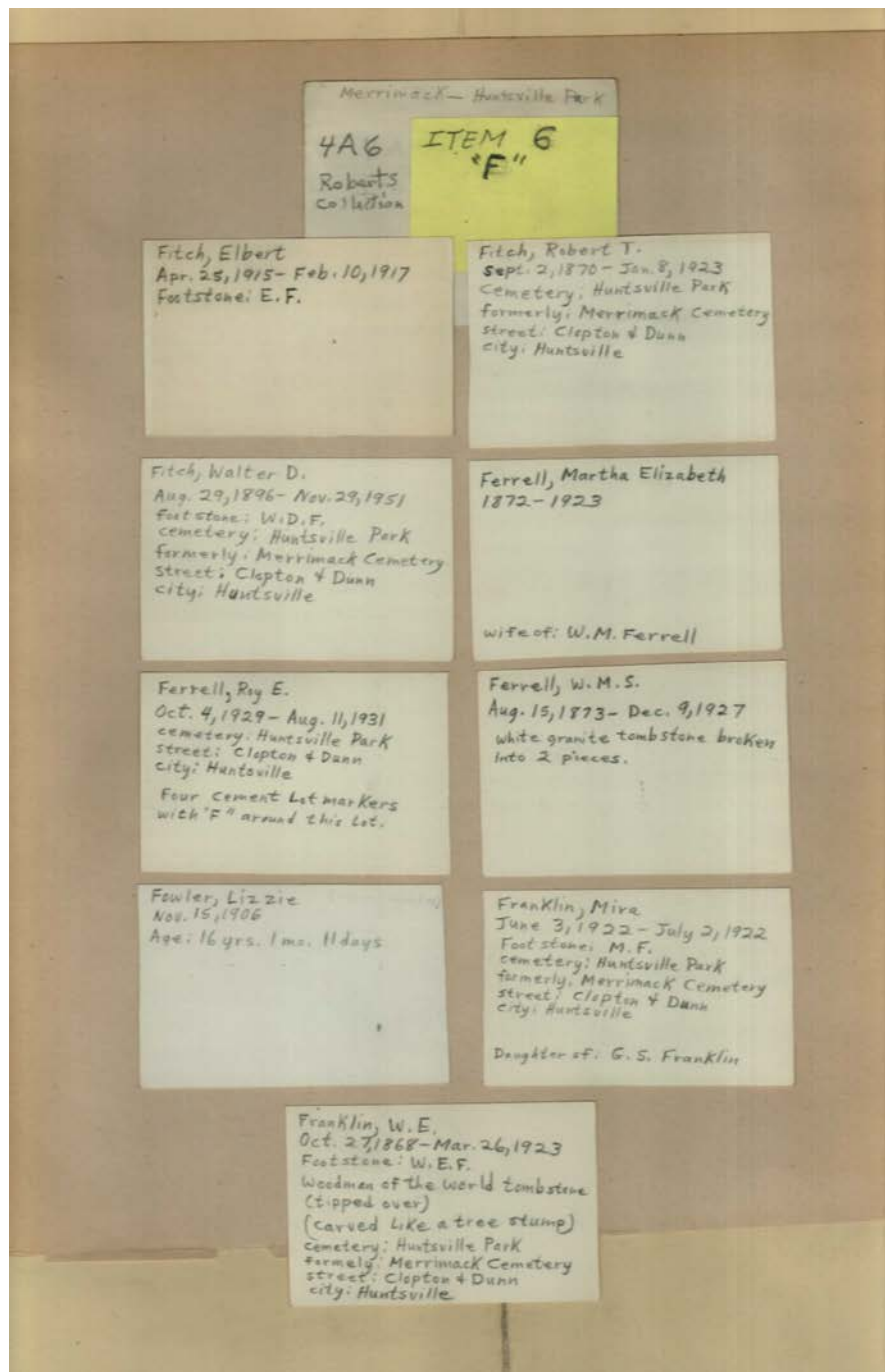 Merrimack — Huntsville Park
4A6
Roberts
Collection
ITEM 6
"F"
Fitch, Elbert
Apr. 25, 1915 - Feb. 10, 1917
Footstone: E.F.
Fitch, Robert T.
Sept. 2, 1870 - Jan. 8, 1923
Cemetery: Huntsville Park
formerly: Merrimack Cemetery
street: Clopton & Dunn
city: Huntsville
Fitch, Walter D.
Aug. 29, 1896 - Nov. 29, 1951
foot stone: W.D.F.
cemetery: Huntsville Park
formerly: Merrimack Cemetery
street: Clopton & Dunn
city: Huntsville
Ferrell, Martha Elizabeth
1872 - 1923
wife of: W.M. Ferrell
Ferrell, Roy E.
Oct. 4, 1929 - Aug. 11, 1931
cemetery: Huntsville Park
street: Clopton & Dunn
city: Huntsville
Four cement Lot markers
with "F" around this Lot.
Ferrell, W.M.S.
Aug. 15, 1873 - Dec. 9, 1927
white granite tombstone broken
into 2 pieces.
Fowler, Lizzie
Nov. 15, 1906
Age: 16 yrs. 1 mo. 11 days
Franklin, Mira
June 3, 1922 - July 2, 1922
Foot stone: M.F.
cemetery: Huntsville Park
formerly: Merrimack Cemetery
street: Clopton & Dunn
city: Huntsville
Daughter of: G.S. Franklin
Franklin, W.E.
Oct. 27, 1868 - Mar. 26, 1923
Footstone: W.E.F.
Woodmen of the World tombstone
(tipped over)
(carved like a tree stump)
cemetery: Huntsville Park
formely: Merrimack Cemetery
street: Clopton & Dunn
city: Huntsville